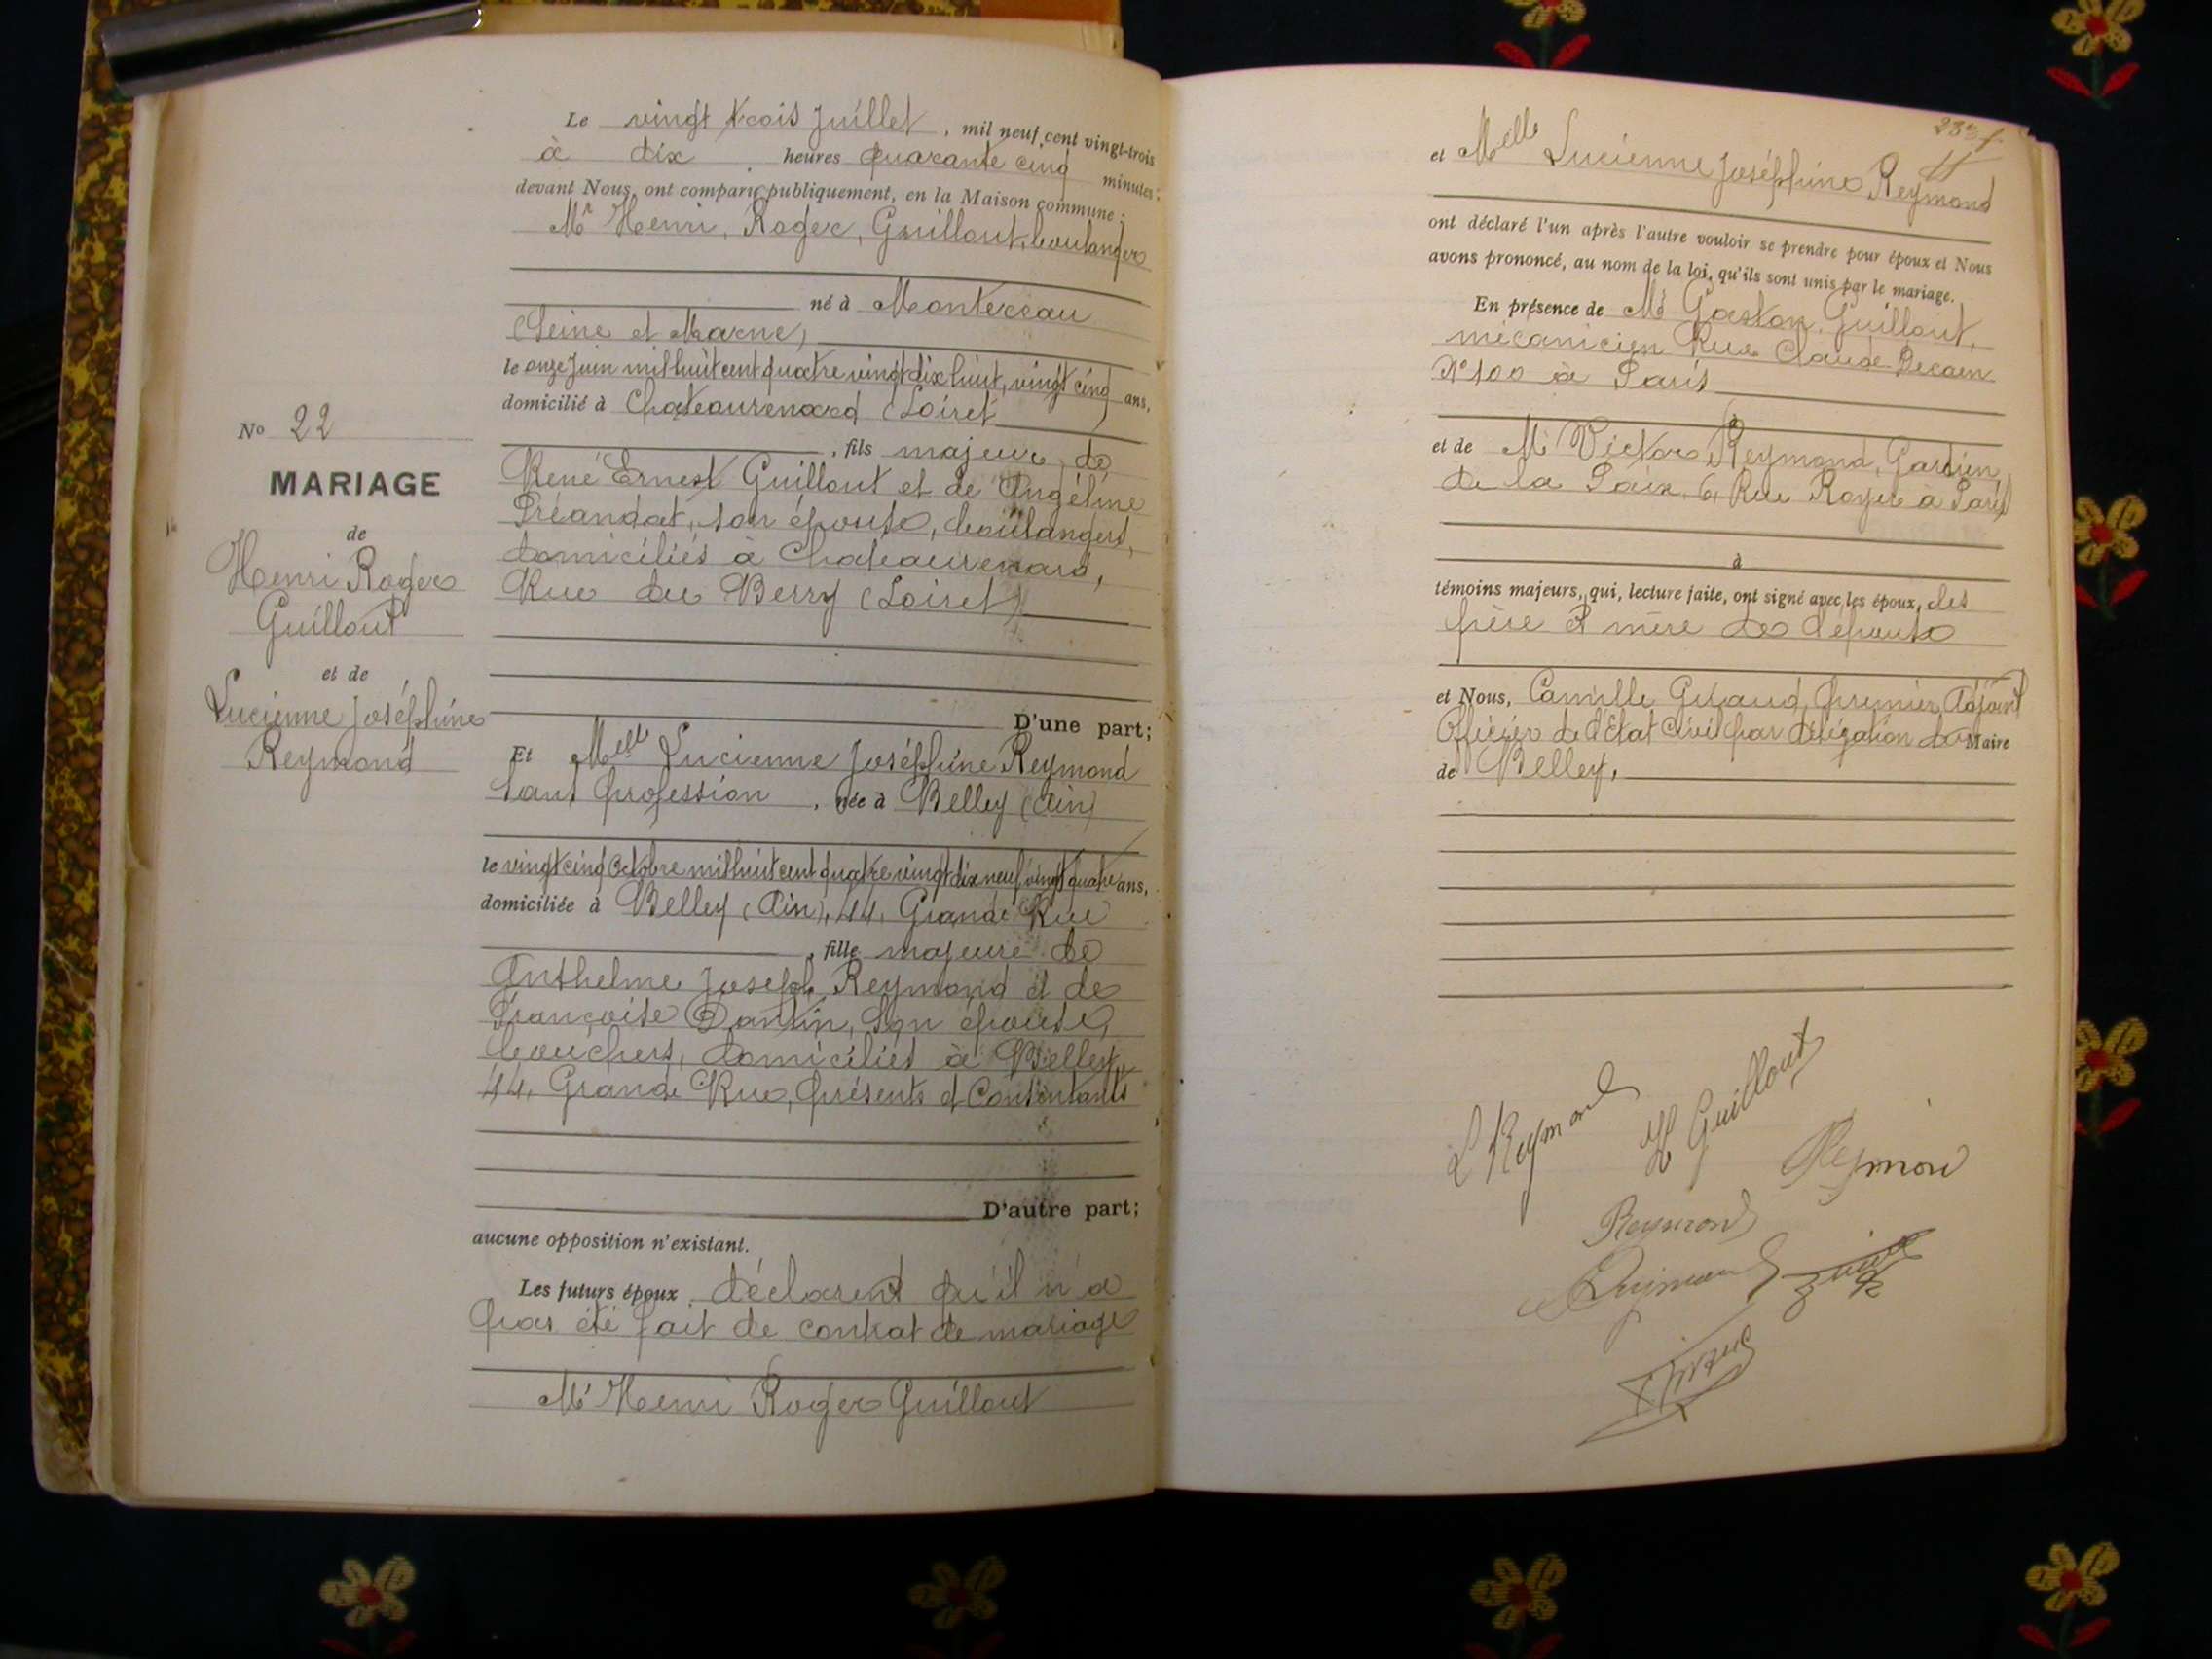 Le vingt trois Juillet, mil neuf cent vingt-trois
à dix heures quarante cinq minutes;
devant Nous, ont comparu publiquement, en la Maison commune;
Mr Henri, Roger, Guillout, boulanger
né à Montereau
(Seine et Marne)
le onze Juin mil huit cent quatre vingt dix huit, vingt cinq ans,
domicilié à Chateaurenard (Loiret)
, fils majeur de
René Ernest Guillout et de Angéline
Préandat, son épouse, boulangers,
domiciliés à Chateaurenard,
Rue du Berry (Loiret)
D'une part;
No 22
MARIAGE
de
Henri Roger
Guillout
et de
Lucienne Joséphine
Reymond
Et Melle Lucienne Joséphine Reymond
sans profession, née à Belley (Ain)
le vingt cinq Octobre mil huit cent quatre vingt dix neuf vingt quatre ans,
domiciliée à Belley (Ain), 44, Grande Rue
, fille majeure de
Anthelme Joseph Reymond et de
Françoise Dantin, son épouse,
bouchers, domiciliés à Belley,
44, Grande Rue, présents et Consentants
D'autre part;
aucune opposition n'existant.
Les futurs époux déclarent qu'il n'a
pas été fait de contrat de mariage
Mr Henri Roger Guillout
et Melle Lucienne Joséphine Reymond
ont déclaré l'un après l'autre vouloir se prendre pour époux et Nous
avons prononcé, au nom de la loi, qu'ils sont unis par le mariage.
En présence de Mr Gaston Guillout,
mécanicien Rue Claude Decaen
No 100 à Paris
à
et de Mr Victor Reymond, Gardien
de la Paix, 6, Rue Royer à Paris
à
témoins majeurs, qui, lecture faite, ont signé avec les époux, les
père et mère de l'épouse
et Nous, Camille Giraud, premier Adjoint
Officier de l'Etat Civil par délégation du Maire
de Belley.
L Reymond
H Guillout
Reymond
Reymond
Reymond